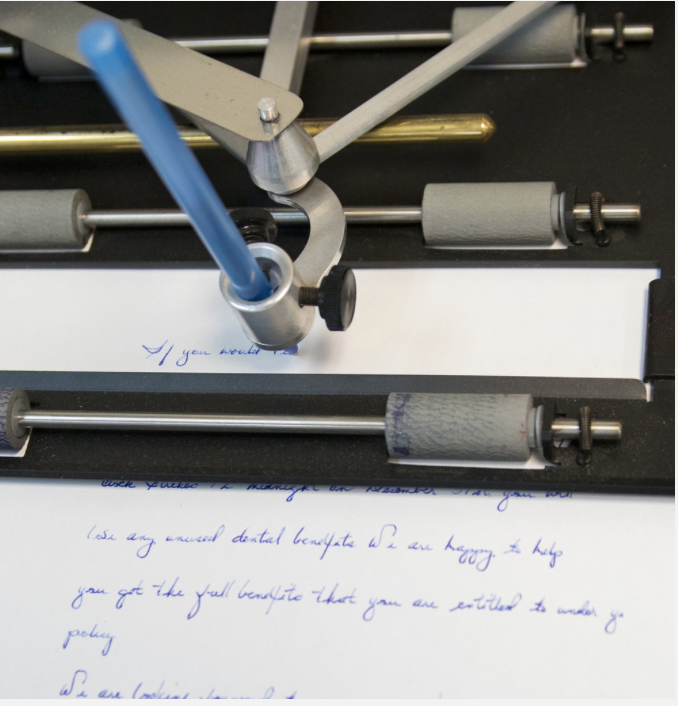 If you would
midnight on December 31st you will
lose any unused dental benefits We are happy to help
you get the full benefits that you are entitled to under
policy
We are looking forward